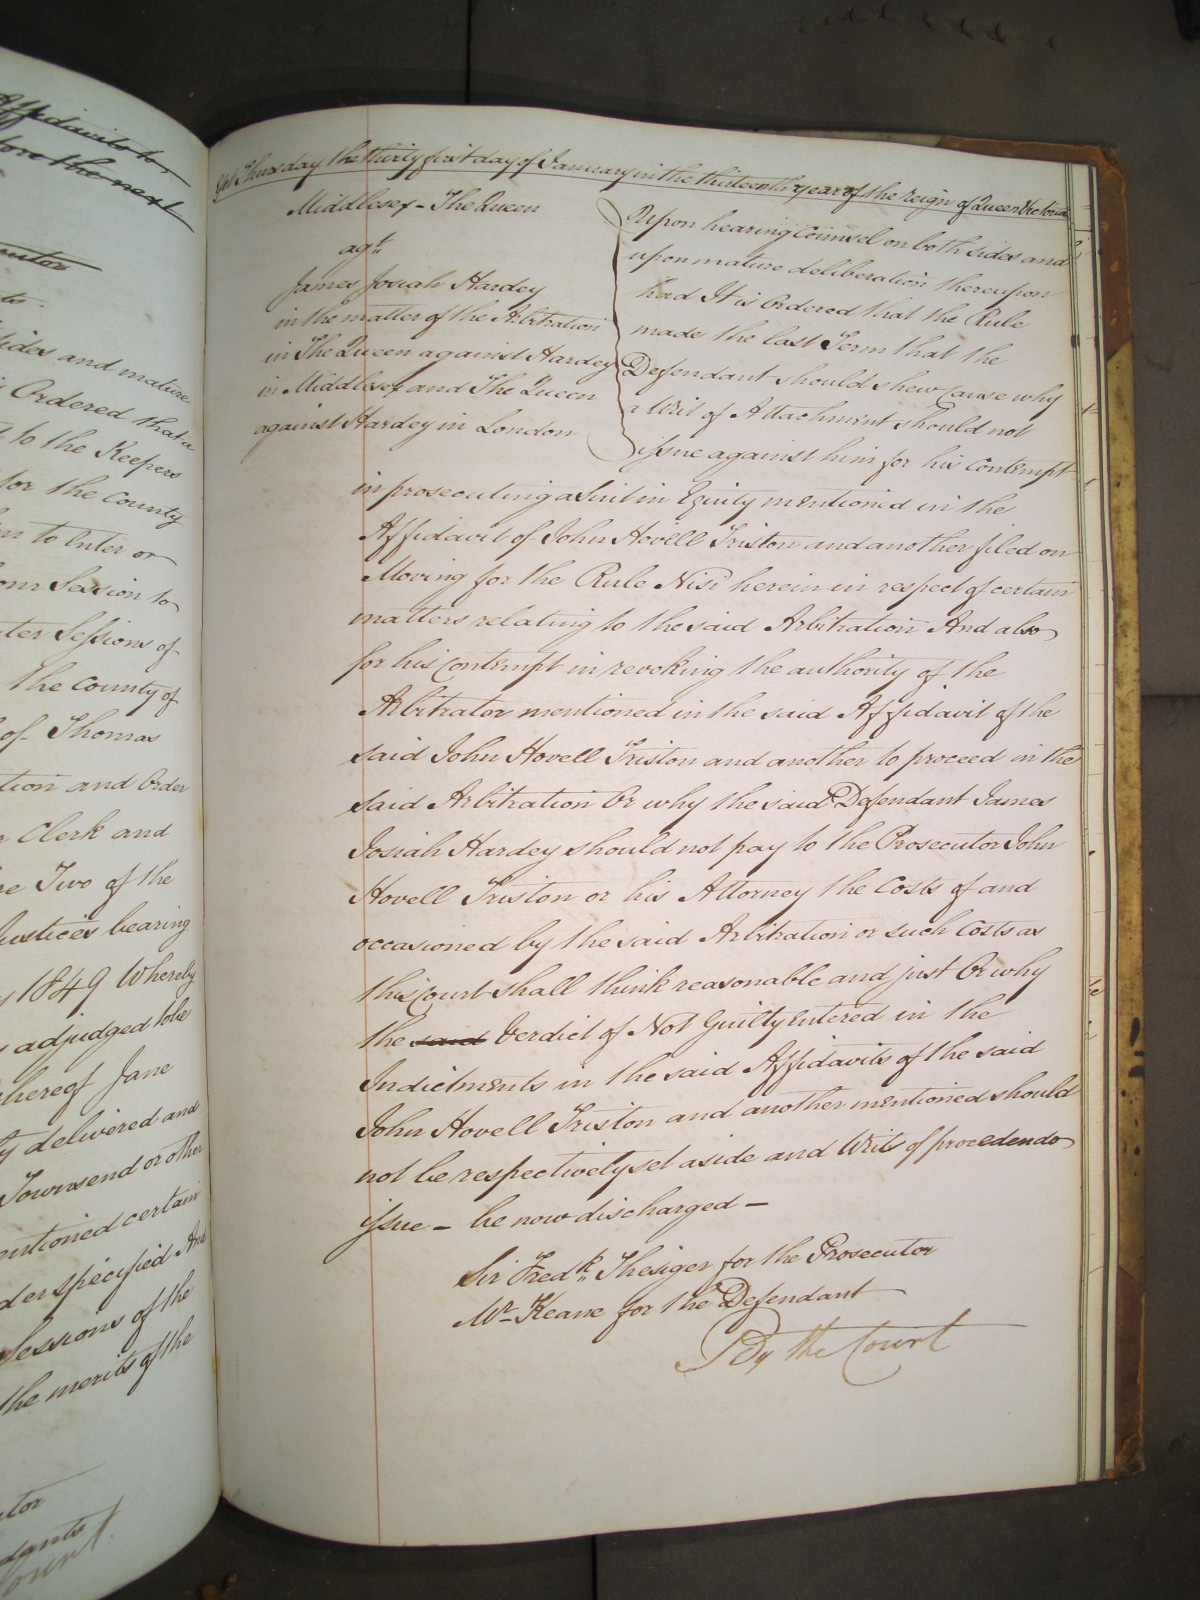 Affidavits to
before the next
to
sides and mature
Ordered that a
to the Keepers
for the County
to Enter or
Session to
Sessions of
the County of
of Thomas
and Order
Clerk and
Two of the
Justices bearing
1849 Whereby
adjudged to be
thereof Jane
delivered and
Townsend or other
mentioned certain
specified And
Sessions of the
the merits of the
On Thursday the thirty first day of January in the thirteenth year of the reign of Queen Victoria
Middlesex - The Queen
agt
James Josiah Hardey
in the matter of the Arbitration
in The Queen against Hardey
in Middlesex and The Queen
against Hardey in London
Upon hearing Counsel on both sides and
upon mature deliberation thereupon
had It is Ordered that the Rule
made the last Term that the
Defendant should shew Cause why
a Writ of Attachment should not
issue against him for his Contempt
in prosecuting a Suit in Equity mentioned in the
Affidavit of John Hovell Triston and another filed on
Moving for the Rule Nisi herein in respect of certain
matters relating to the said Arbitration And also
for his Contempt in revoking the authority of the
Arbitrator mentioned in the said Affidavit of the
said John Hovell Triston and another to proceed in the
said Arbitration Or why the said Defendant James
Josiah Hardey should not pay to the Prosecutor John
Hovell Triston or his Attorney the Costs of and
occasioned by the said Arbitration or such Costs as
this Court shall think reasonable and just Or why
the said Verdict of Not Guilty Entered in the
Indictments in the said Affidavits of the said
John Hovell Triston and another mentioned should
not be respectively set aside and Writs of procedendo
issue - be now discharged -
Sir Fredk Thesiger for the Prosecutor
Mr Keane for the Defendant
By the Court